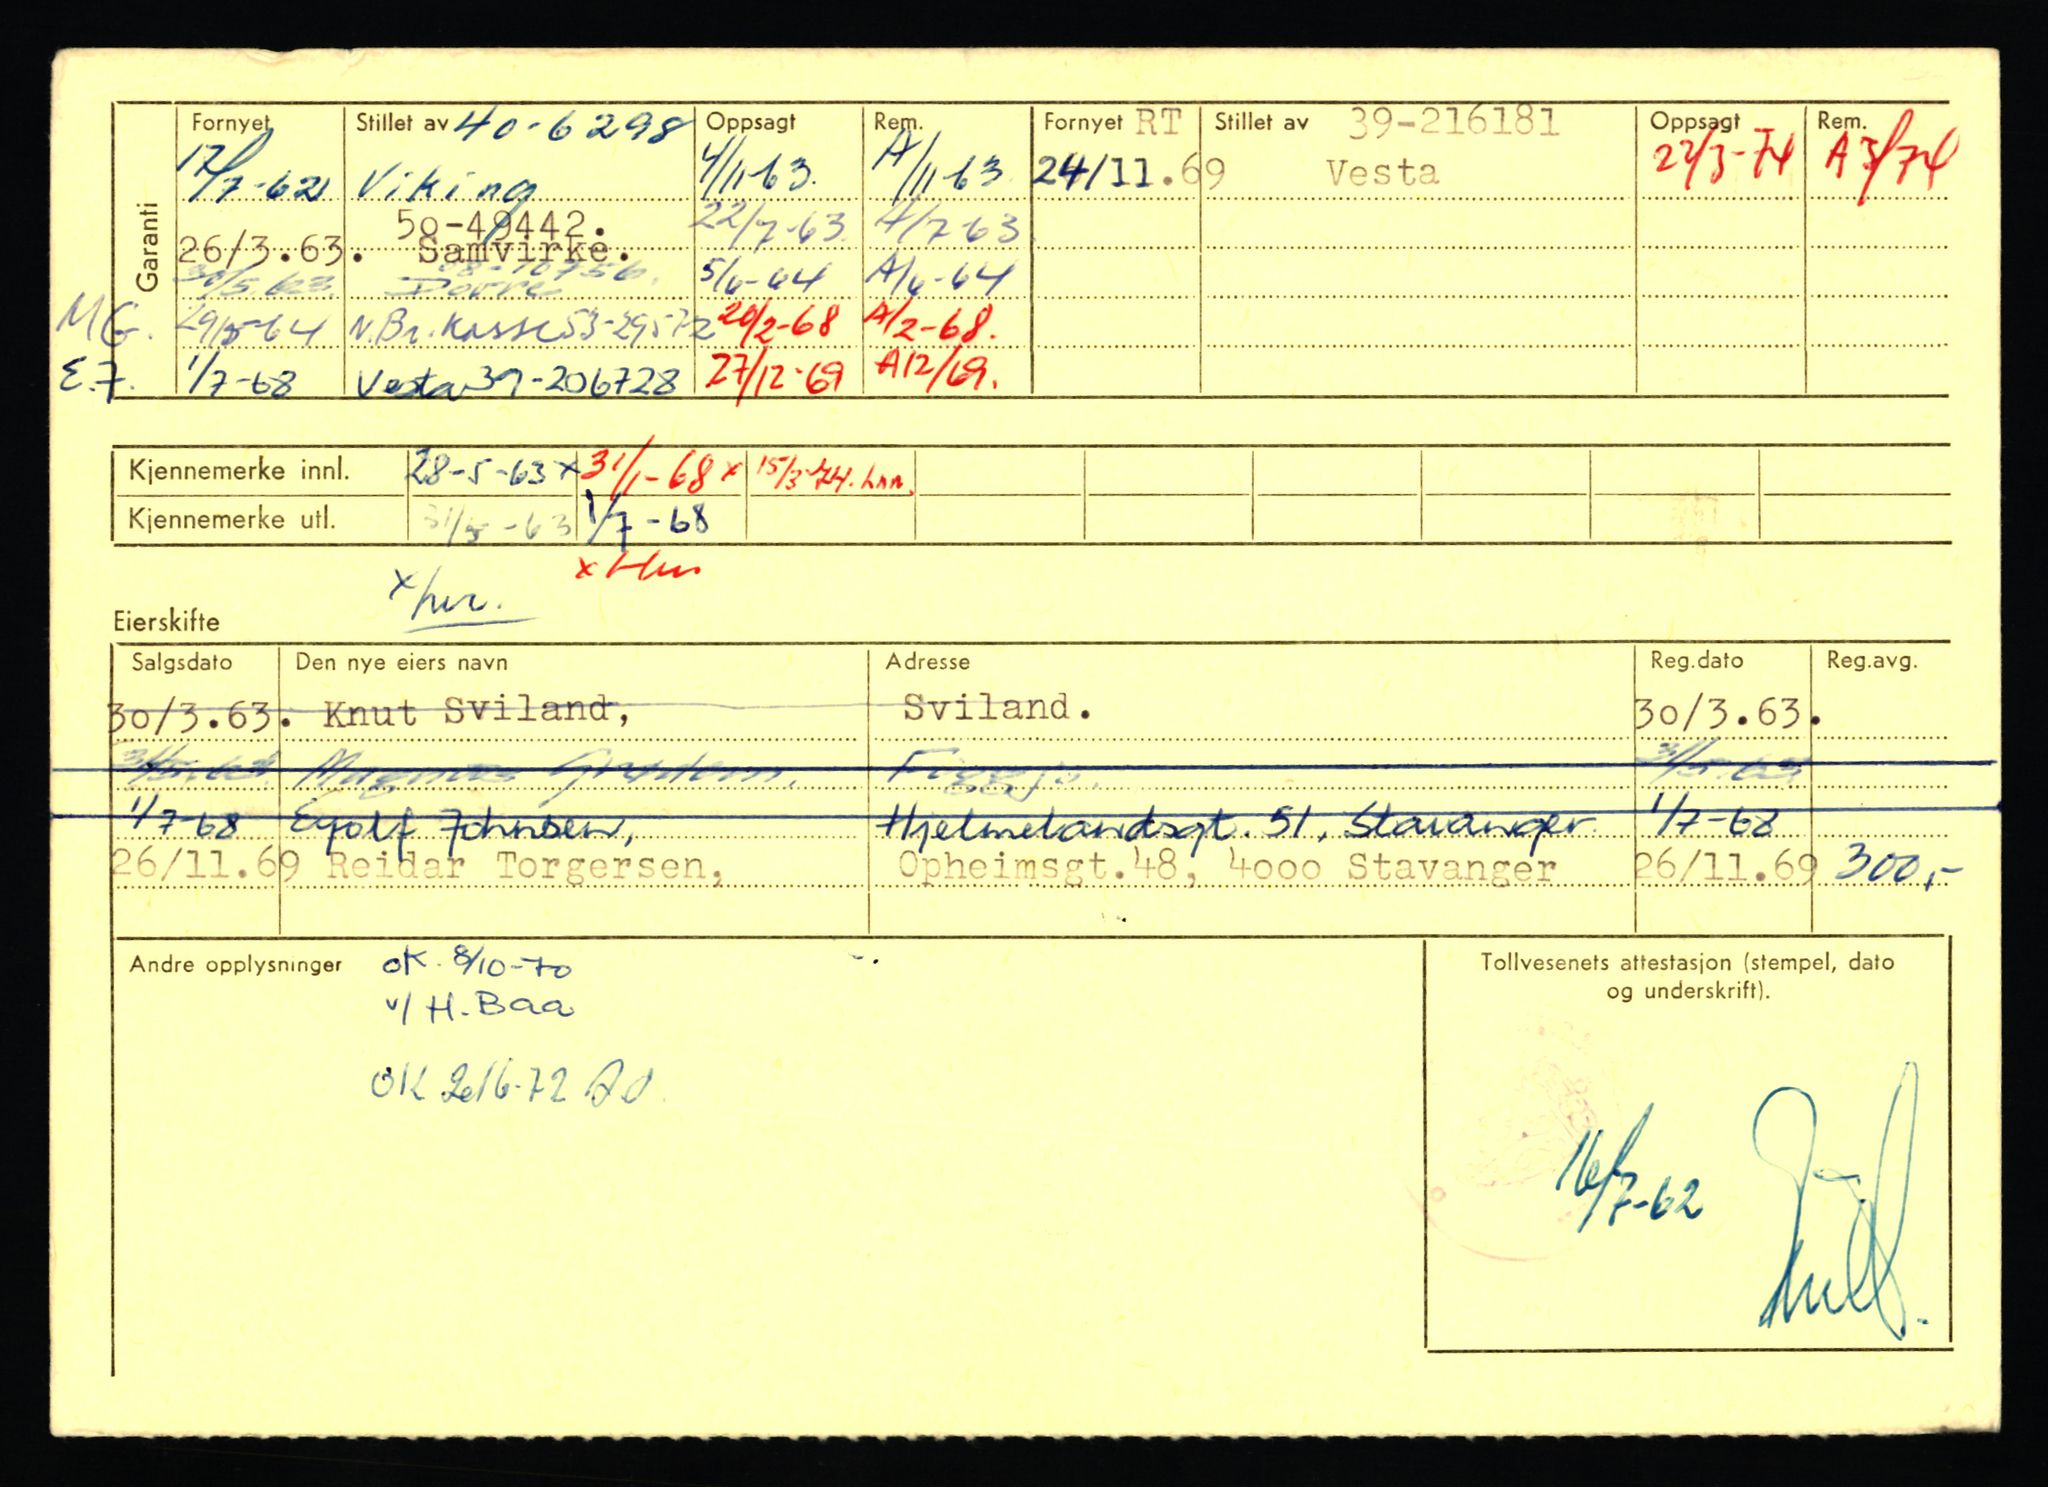 Garanti
Fornyet Stillet av 40-6298 Oppsagt Rem. Fornyet RT Stillet av 39-216181 Oppsagt Rem.
17/7-62 Viking 4/11-63. A/11-63 24/11.69 Vesta 22/3-74 A 3/74
50-49442. 22/7-63. A/7-63
26/3.63. Samvirke.
30/5.63. 5/6-64 A/6-64
M G. 29/5-64 N.Br.Kasse 53-29572 20/2-68 A/2-68.
E.J. 1/7-68 Vesta 39-206728 27/12-69 A12/69.
Kjennemerke innl. 28-5-63 x 31/1-68 x 15/3-74.
Kjennemerke utl. 31/5-63 1/7-68
Eierskifte
Salgsdato Den nye eiers navn Adresse Reg.dato Reg.avg.
30/3.63. Knut Sviland, Sviland. 30/3.63.
31/5.63 Magnus 31/5.63
1/7-68 Eyolf Johnsen, Hjelmelandsgt. 51, Stavanger 1/7-68
26/11.69 Reidar Torgersen, Opheimsgt.48, 4000 Stavanger 26/11.69 300,-
Andre opplysninger OK. 8/10-70
v/ H. Baa
OK 2/6-72
Tollvesenets attestasjon (stempel, dato
og underskrift).
16/7-62